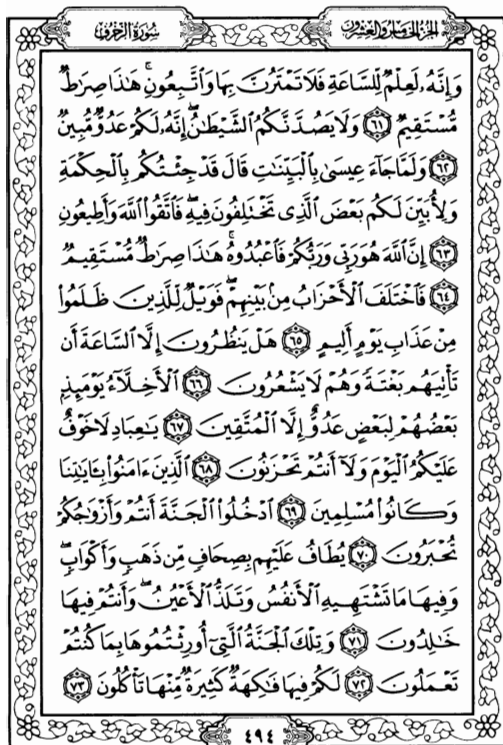 الجزء الخامس والعشرون
سورة الزخرف
وَإِنَّهُۥ لَعِلْمٌ لِّلسَّاعَةِ فَلَا تَمْتَرُنَّ بِهَا وَٱتَّبِعُونِ ۚ هَـٰذَا صِرَٰطٌ
مُّسْتَقِيمٌ ٦١ وَلَا يَصُدَّنَّكُمُ ٱلشَّيْطَـٰنُ ۖ إِنَّهُۥ لَكُمْ عَدُوٌّ مُّبِينٌ
٦٢ وَلَمَّا جَآءَ عِيسَىٰ بِٱلْبَيِّنَـٰتِ قَالَ قَدْ جِئْتُكُم بِٱلْحِكْمَةِ
وَلِأُبَيِّنَ لَكُم بَعْضَ ٱلَّذِى تَخْتَلِفُونَ فِيهِ ۖ فَٱتَّقُوا۟ ٱللَّهَ وَأَطِيعُونِ
٦٣ إِنَّ ٱللَّهَ هُوَ رَبِّى وَرَبُّكُمْ فَٱعْبُدُوهُ ۚ هَـٰذَا صِرَٰطٌ مُّسْتَقِيمٌ
٦٤ فَٱخْتَلَفَ ٱلْأَحْزَابُ مِنۢ بَيْنِهِمْ ۖ فَوَيْلٌ لِّلَّذِينَ ظَلَمُوا۟
مِنْ عَذَابِ يَوْمٍ أَلِيمٍ ٦٥ هَلْ يَنظُرُونَ إِلَّا ٱلسَّاعَةَ أَن
تَأْتِيَهُم بَغْتَةً وَهُمْ لَا يَشْعُرُونَ ٦٦ ٱلْأَخِلَّآءُ يَوْمَئِذٍۭ
بَعْضُهُمْ لِبَعْضٍ عَدُوٌّ إِلَّا ٱلْمُتَّقِينَ ٦٧ يَـٰعِبَادِ لَا خَوْفٌ
عَلَيْكُمُ ٱلْيَوْمَ وَلَآ أَنتُمْ تَحْزَنُونَ ٦٨ ٱلَّذِينَ ءَامَنُوا۟ بِـَٔايَـٰتِنَا
وَكَانُوا۟ مُسْلِمِينَ ٦٩ ٱدْخُلُوا۟ ٱلْجَنَّةَ أَنتُمْ وَأَزْوَٰجُكُمْ
تُحْبَرُونَ ٧٠ يُطَافُ عَلَيْهِم بِصِحَافٍ مِّن ذَهَبٍ وَأَكْوَابٍ ۖ
وَفِيهَا مَا تَشْتَهِيهِ ٱلْأَنفُسُ وَتَلَذُّ ٱلْأَعْيُنُ ۖ وَأَنتُمْ فِيهَا
خَـٰلِدُونَ ٧١ وَتِلْكَ ٱلْجَنَّةُ ٱلَّتِىٓ أُورِثْتُمُوهَا بِمَا كُنتُمْ
تَعْمَلُونَ ٧٢ لَكُمْ فِيهَا فَـٰكِهَةٌ كَثِيرَةٌ مِّنْهَا تَأْكُلُونَ ٧٣
٤٩٤